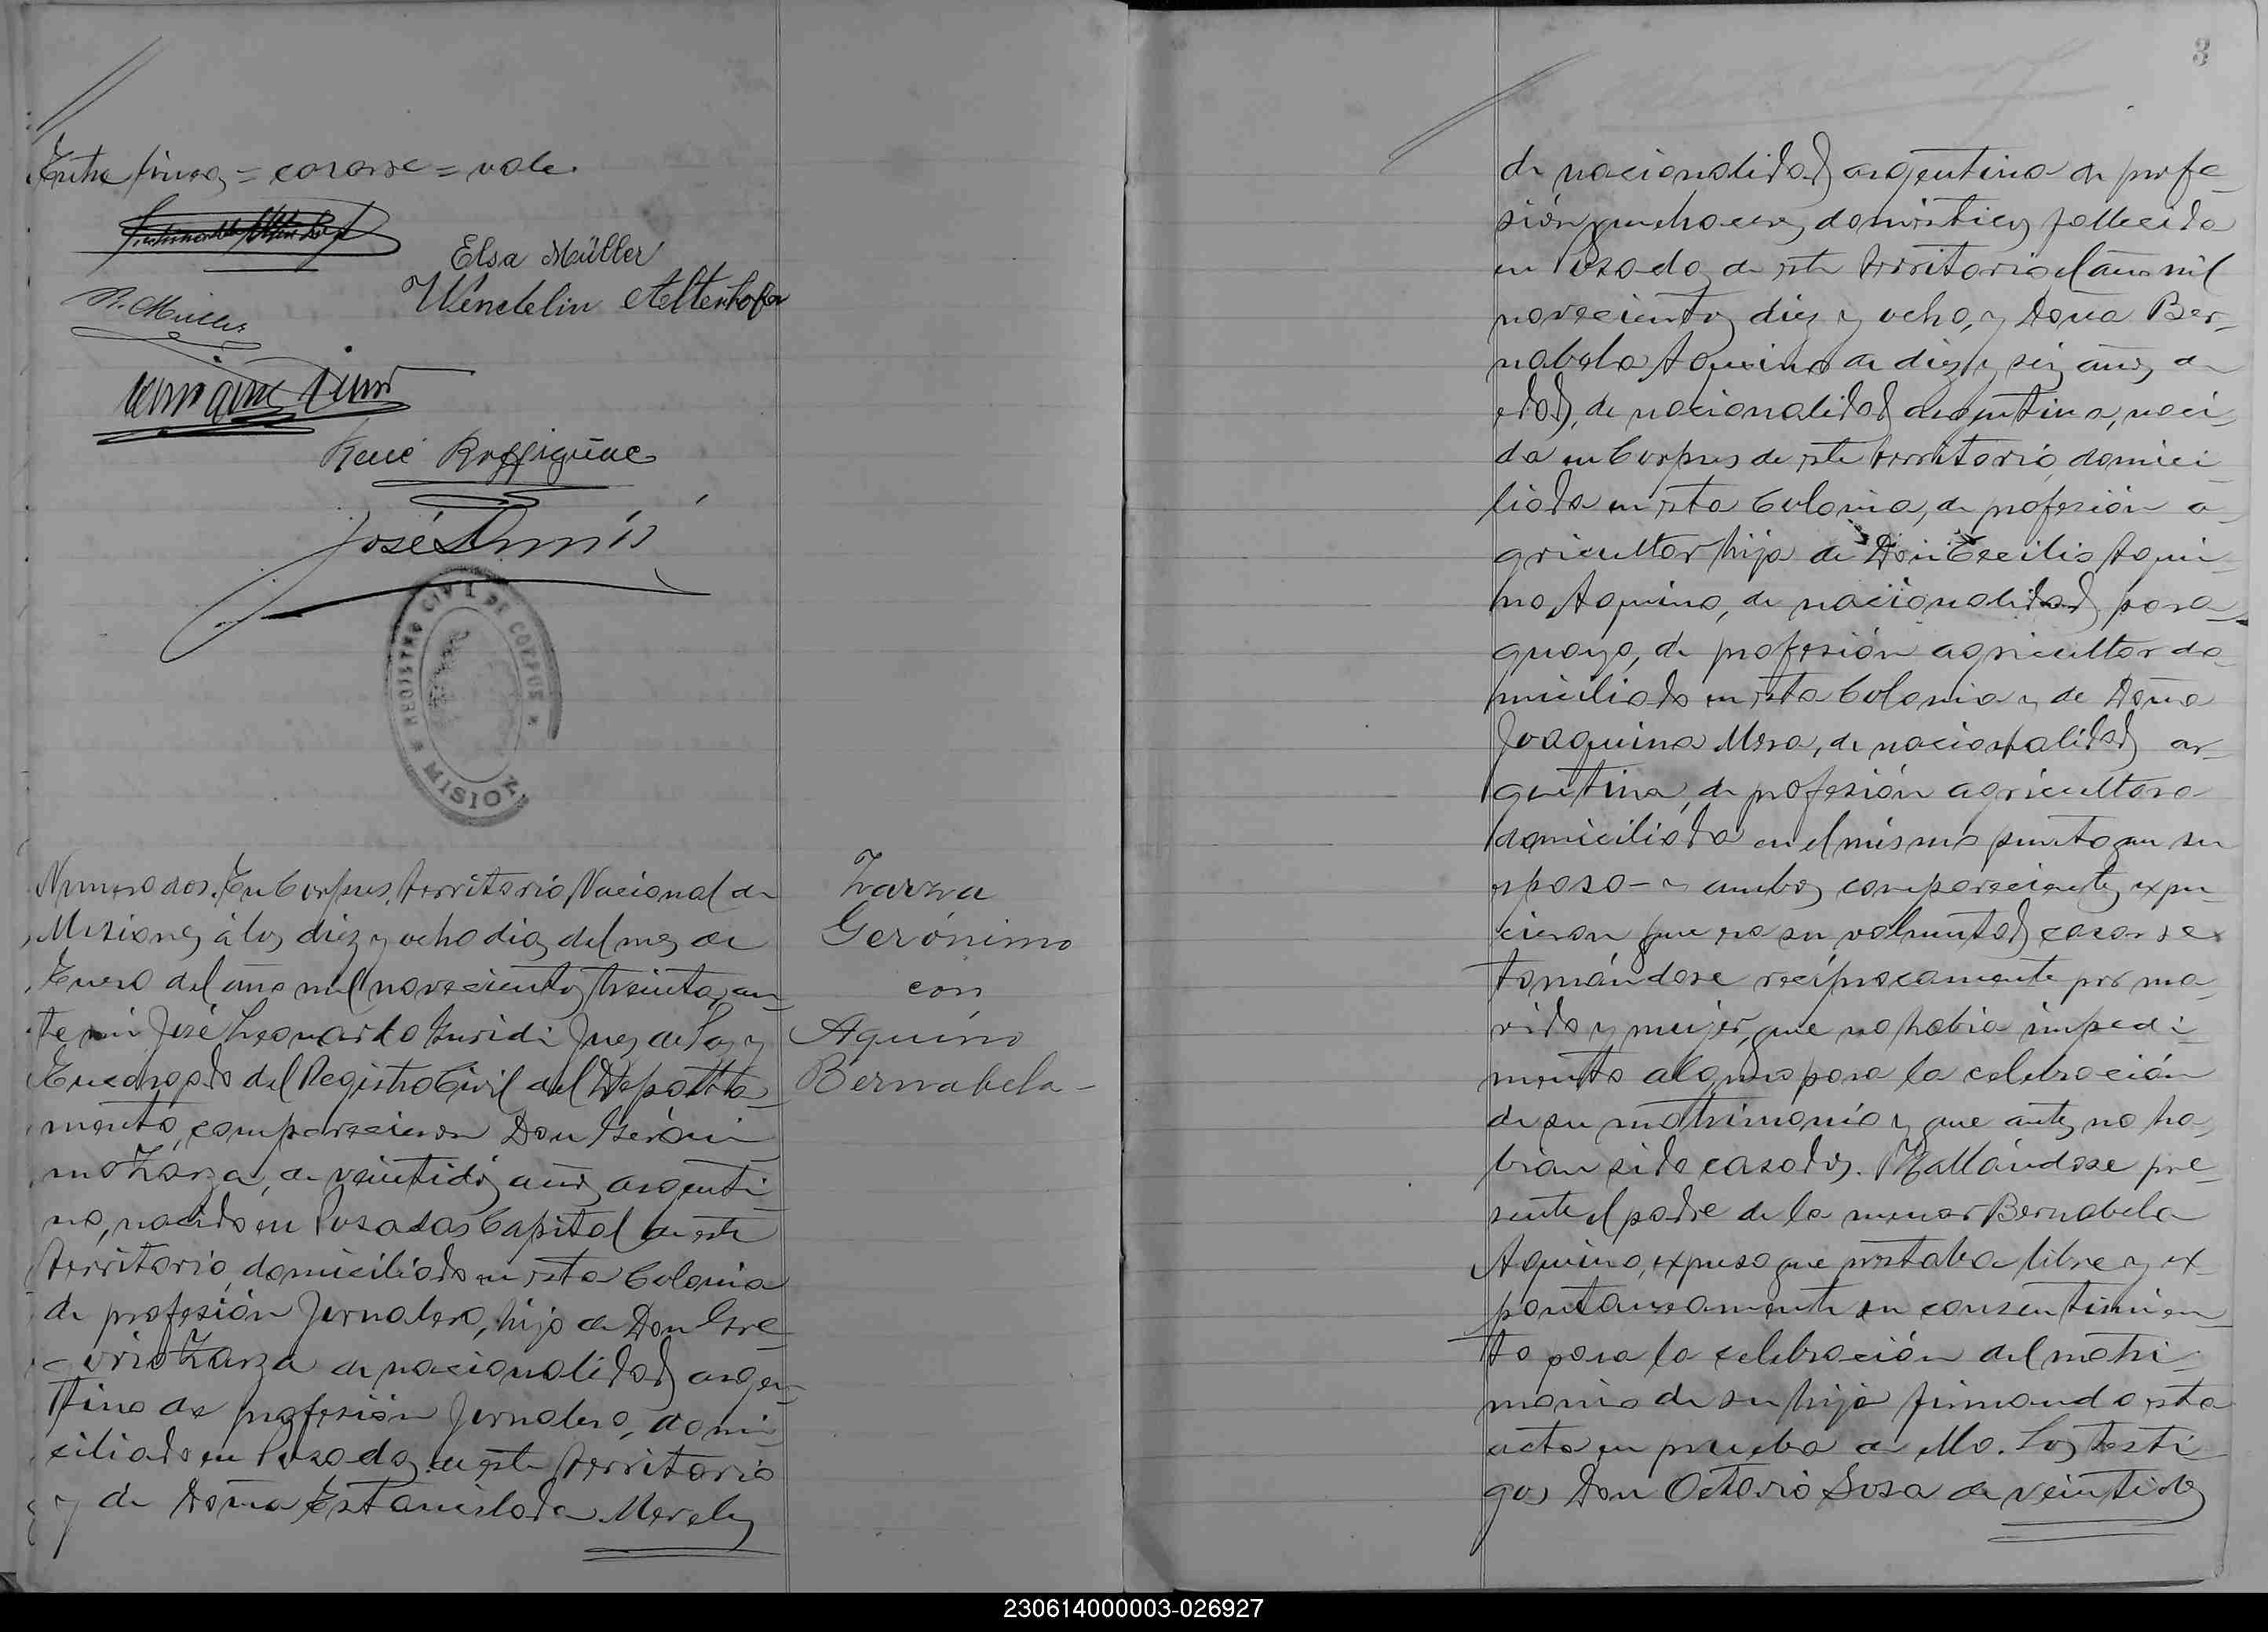 Entre líneas = casarse = vale.
Elsa Müller
Wendelin Altenhofer
R. Müller
René Roffignac
José
REGISTRO CIVIL DE CORPUS
MISION
Numero dos. En Corpus, territorio Nacional de
Misiones, á los diez y ocho dias del mes de
Enero del año mil novecientos treinta, an-
te mi José Leonardo Juez de Paz y
Encargado del Registro Civil del Departa-
mento, comparecieron Don Geróni-
mo Zarza, de veintidos años, argenti-
no, nacido en Posadas Capital de este
territorio, domiciliado en esta Colonia
de profesión Jornalero, hijo de Don Gre-
gorio Zarza de nacionalidad argen-
tino de profesión Jornalero, domi-
ciliado en Posadas de este territorio
y de Doña Estanislada Mereles
Zarza
Gerónimo
con
Aquino
Bernabela-
3
de nacionalidad argentina de profe-
sión quehaceres domésticos fallecida
en Posadas de este territorio el año mil
novecientos diez y ocho, y Doña Ber-
nabela Aquino de diez y seis años de
edad, de nacionalidad argentina, naci-
da en Corpus de este territorio domici-
liada en esta Colonia, de profesión a-
gricultor hija de Don Cecilio Aqui-
no Aquino, de nacionalidad para-
guayo, de profesión agricultor do-
miciliado en esta Colonia y de Doña
Joaquina Mesa, de nacionalidad ar-
gentina, de profesión agricultora
domiciliada en el mismo punto que su
esposo- y ambos comparecientes expu-
cieron que era su voluntad casarse
tomándose recíprocamente por ma-
rido y mujer, que no habia impedi-
mento alguno para la celebración
de su matrimonio y que antes no ha-
bian sido casados. Hallándose pre-
sente el padre de la menor Bernabela
Aquino, expuso que prestaba libre y ex-
pontaneamente su consentimien-
to para la celebración del matri-
monio de su hija firmando esta
acta en prueba de ello. Los testi-
gos Don Octavio Sosa de veintidos
230614000003-026927